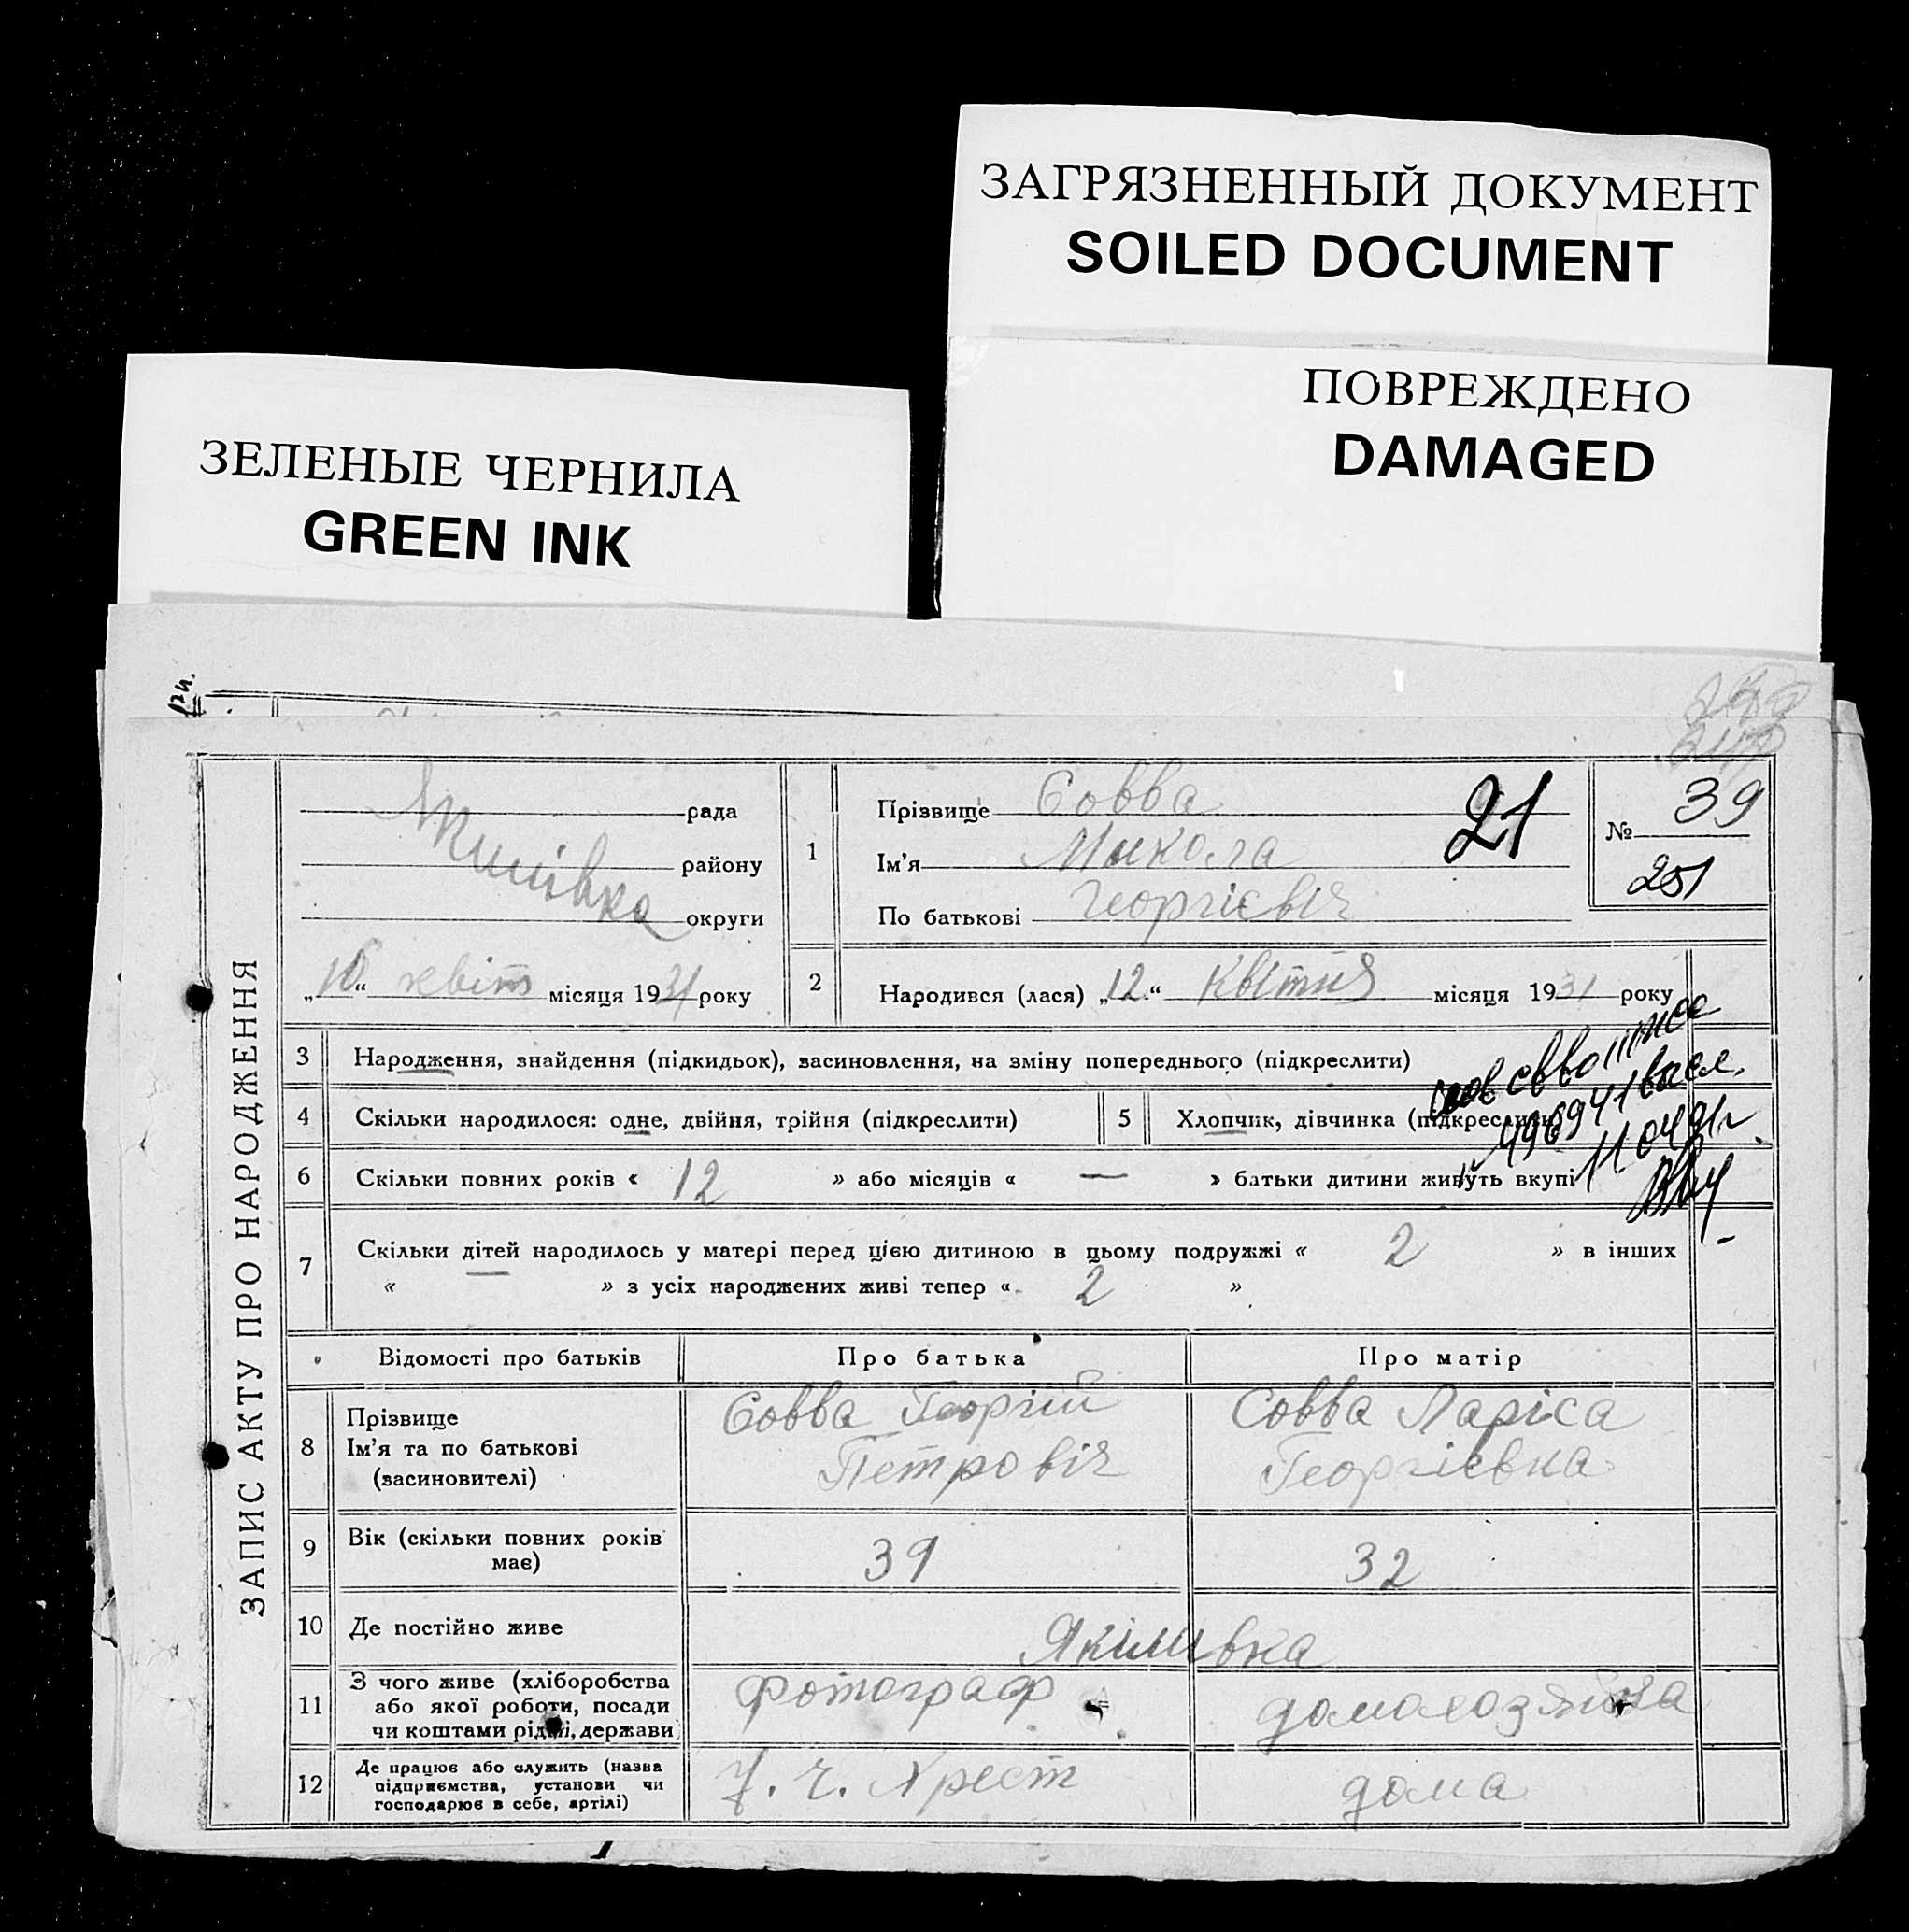 ЗАГРЯЗНЕННЫЙ ДОКУМЕНТ
SOILED DOCUMENT
ПОВРЕЖДЕНО
DAMAGED
ЗЕЛЕНЫЕ ЧЕРНИЛА
GREEN INK
ЗАПИС АКТУ ПРО НАРОДЖЕННЯ
рада
району
округи
„ “ квіт місяця 1931 року
1
Прізвище Совва
Ім'я Микола
По батькові Георгієвіч
21
№ 39
251
2
Народився (лася) „12“ Квітня місяця 1931 року
3 Народження, знайдення (підкидьок), засиновлення, на зміну попереднього (підкреслити)
4 Скільки народилося: одне, двійня, трійня (підкреслити)
5 Хлопчик, дівчинка (підкреслити)
11 04 91г.
6 Скільки повних років « 12 » або місяців « — » батьки дитини живуть вкупі
7 Скільки дітей народилось у матері перед цією дитиною в цьому подружжі « 2 » в інших
« — » з усіх народжених живі тепер « 2 »
Відомості про батьків Про батька Про матір
8 Прізвище
Ім'я та по батькові
(засиновителі)
Совва Георгий
Петровіч
Совва Ларіса
Георгієвна
9 Вік (скільки повних років
має)
39 32
10 Де постійно живе Якімівка
11 З чого живе (хліборобства
або якої роботи, посади
чи коштами рідні, держави
фотограф
12 Де працює або служить (назва
підприємства, установи чи
господарює в себе, артілі)
Хрест
дома